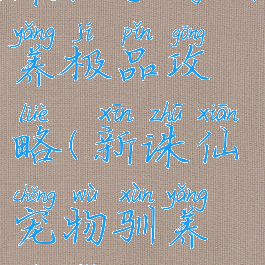 yǎng jí pǐn gōng
养极品攻
lüè xīn zhū xiān
略(新诛仙
chǒng wù xùn yǎng
宠物驯养